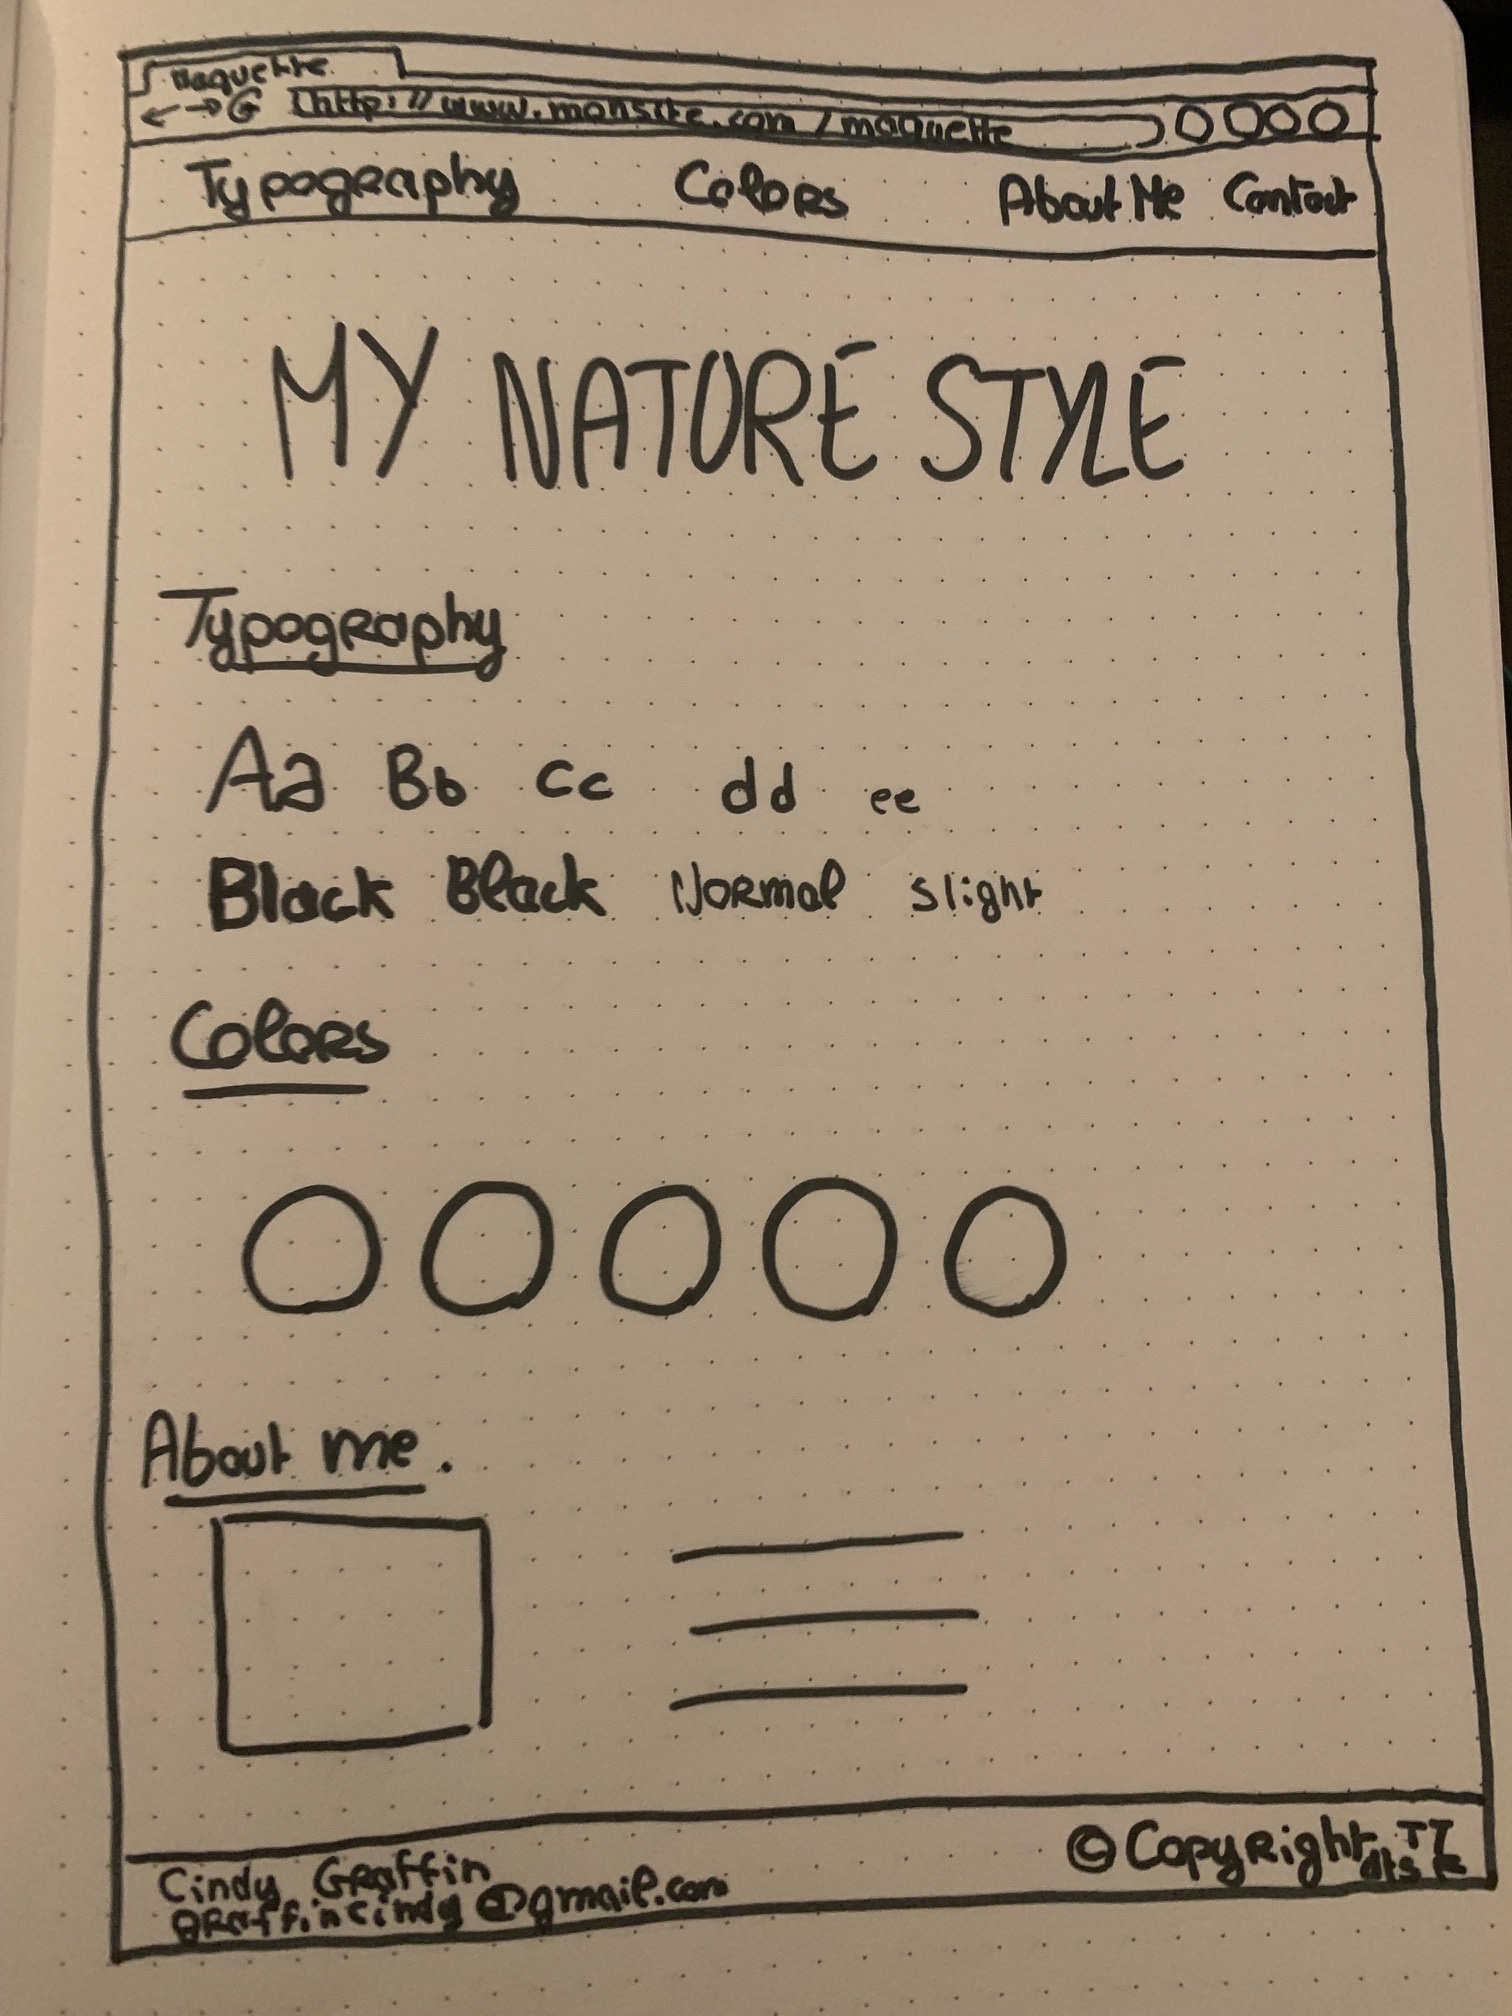 Maquette
http://www.monsite.com/maquette
Typography Colors About Me Contact
MY NATURE STYLE
Typography
Aa Bb Cc dd ee
Black Black Normal Slight
Colors
About me.
Cindy Graffin
graffincindy@gmail.com
© Copyright